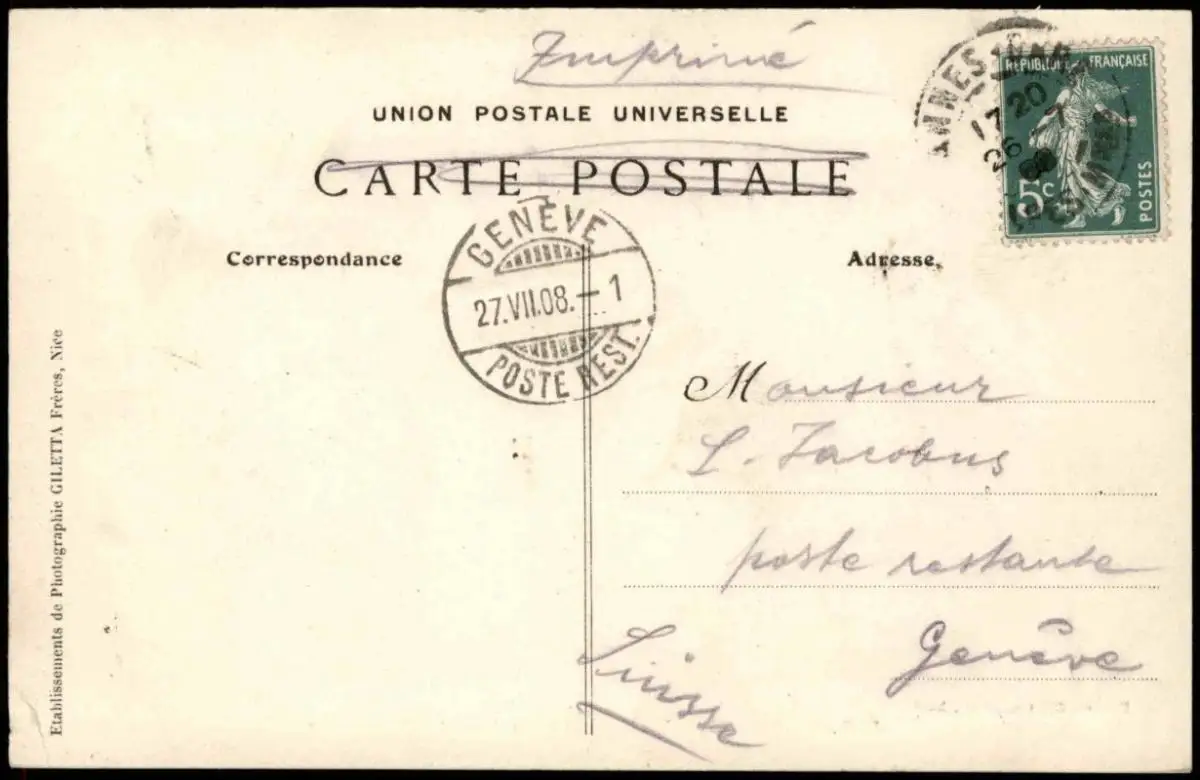 Imprimé
UNION POSTALE UNIVERSELLE
CARTE POSTALE
RÉPUBLIQUE FRANÇAISE
5c
POSTES
20
26
GENÈVE
27.VII.08.–1
POSTE REST.
Correspondance
Adresse.
Monsieur
L. Jacobus
poste restante
Genêve
Suisse
Etablissements de Photographie GILETTA Frères, Nice